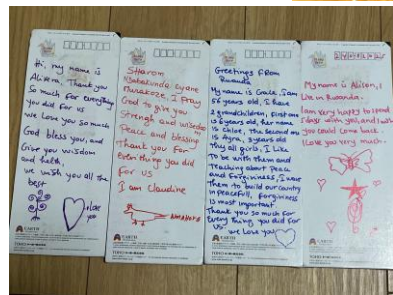 Hi, my name is
Thank you
so much for everything
you did for us
we love you so much
God bless you, and
Give you wisdom
and health,
we wish you all the
best
love
you
Sharom
I Pray
God to give you
Strength and wisdom
Peace and blessing
Thank you for
Everything you did
for us
I am Claudine
Greetings FROM
Rwanda
My name is Grace. I am
56 years old, I have
2 grandchildren, first one
is 6 years old, her name
is Chloe, The second one
is 3 years old
They all girls, I like
To be with them and
Teaching about Peace
and forgiveness, I want
Them to build our country
in peacefull, forgiveness
is most important
Thank you so much for
Every Thing you did for
us
we love you
My name is Alison, I
Live in Rwanda.
I am very happy to spend
days with you, and I wish
you could come back.
I Love you very much.
EARTH
EARTH
EARTH
EARTH